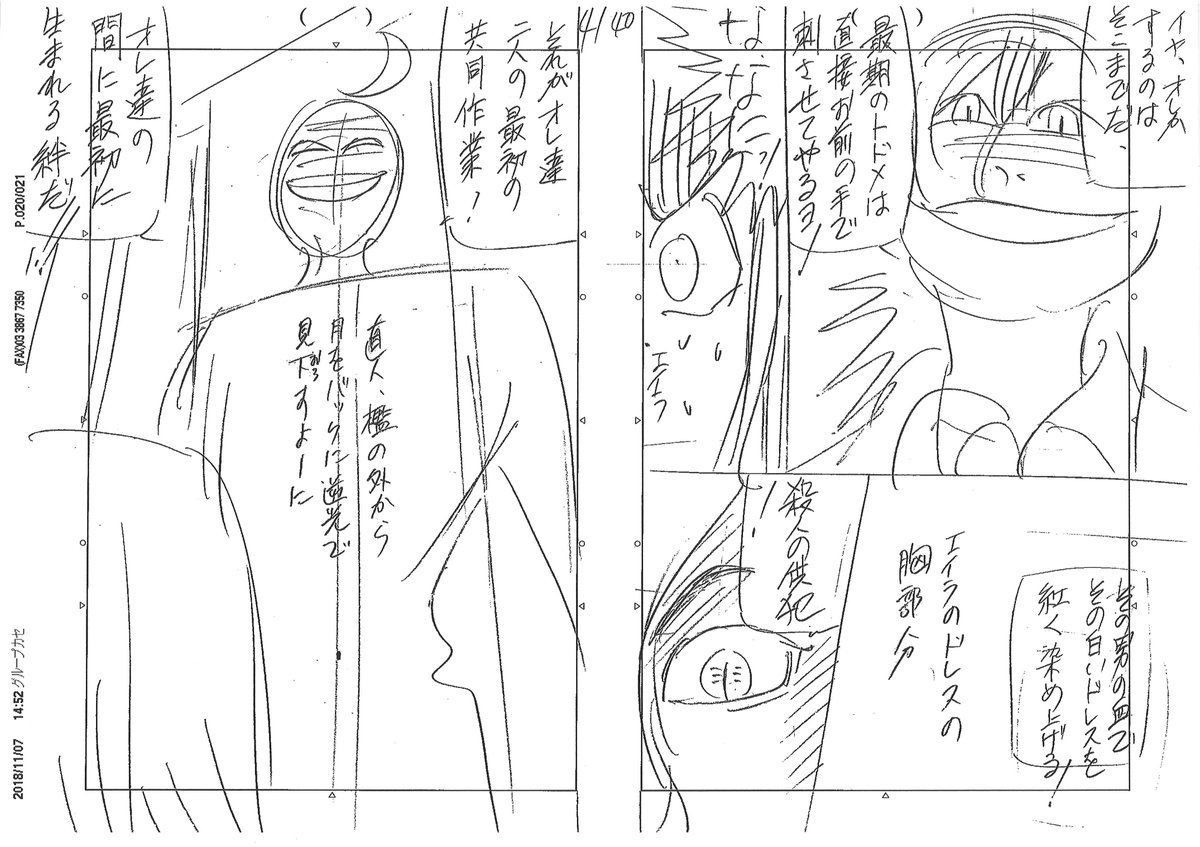 イヤ、オレが
するのは
そこまでだ、
最期のトドメは
直接お前の手で
刺させてやるヨ!!
な
な…
エイラ
その男の血で
その白いドレスを
紅く染め上げる!
エイラのドレスの
胸部分
殺人の共犯…!
41
40
それがオレ達
二人の最初の
共同作業!
直人、檻の外から
月をバックに逆光で
見下すよーに
オレ達の
間に最初に
生まれる絆だ!!
2018/11/07 14:52 グループカセ
(FAX)03 3867 7350
P.020/021